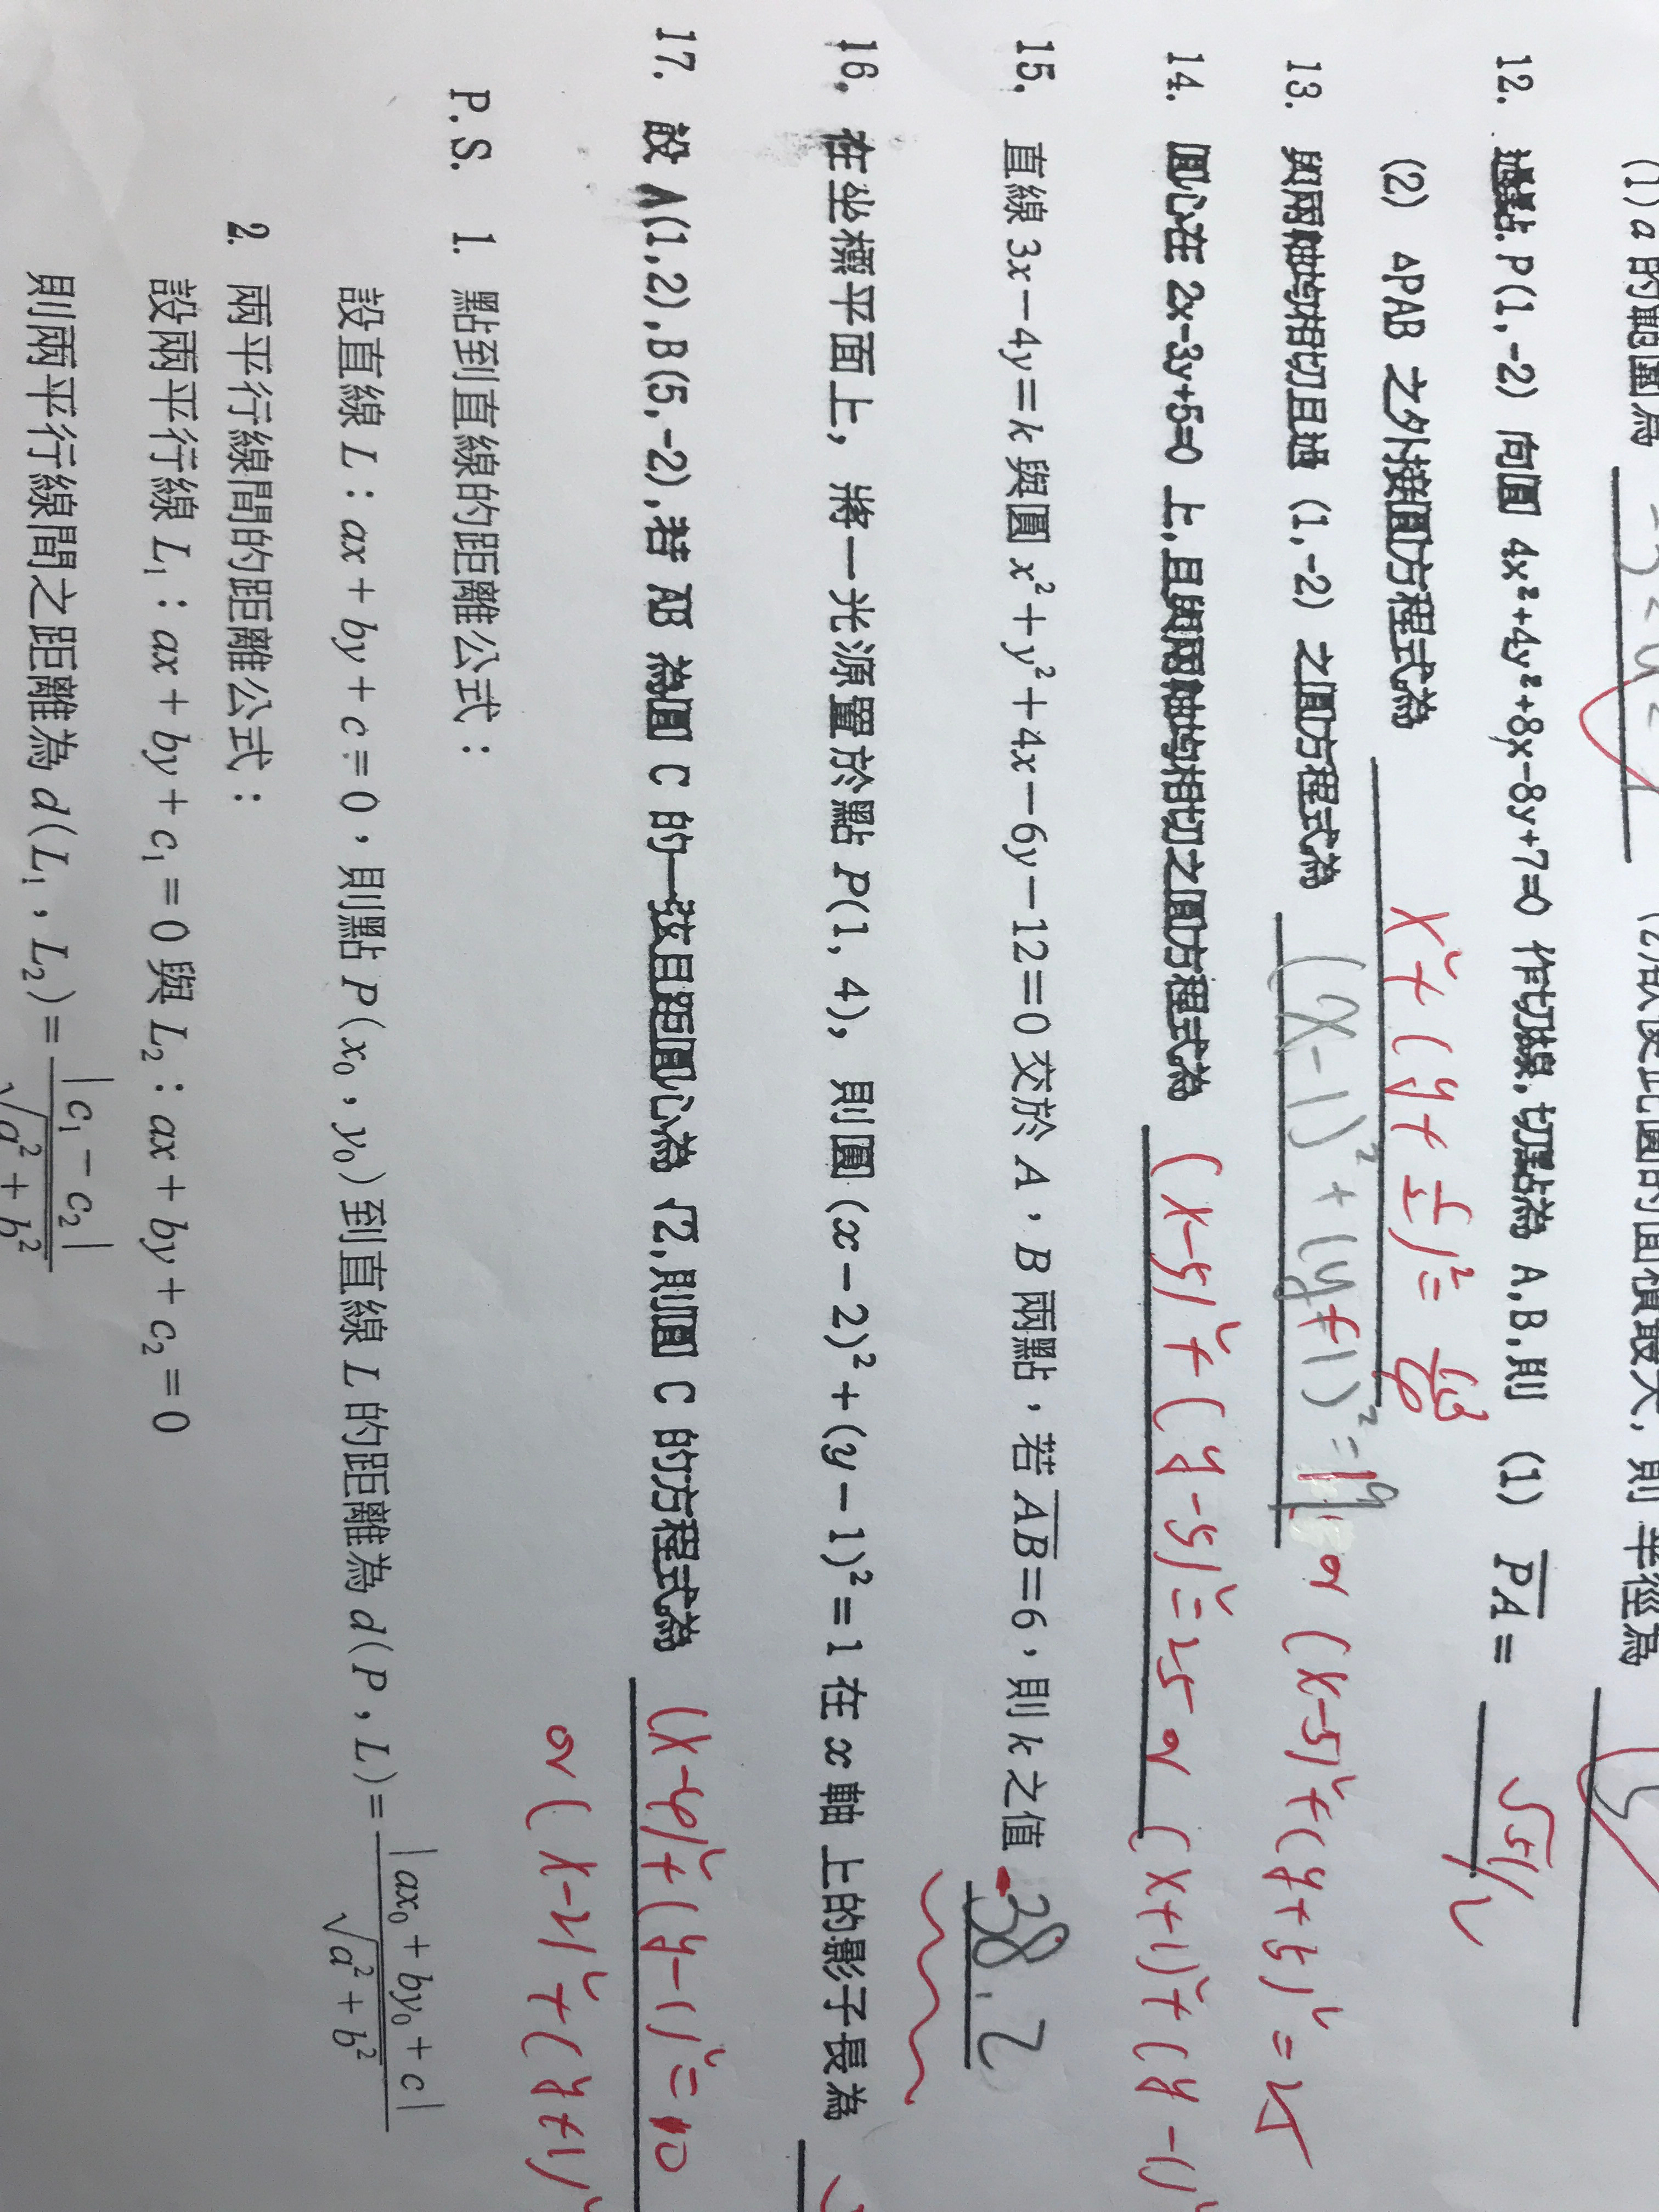 (1) a 的範圍為
12. 過點 P(1,-2) 向圓 4x²+4y²+8x-8y+7=0 作切線,切點為 A,B,則 (1) PA = √51/2
(2) △PAB 之外接圓方程式為 x²+(y+1/2)²=
13. 與兩軸均相切且過 (1,-2) 之圓方程式為 (x-1)²+(y+1)²=1 or (x-5)²+(y+5)²=25
14. 圓心在 2x-3y+5=0 上,且與兩軸均相切之圓方程式為 (x-5)²+(y-5)²=25 or (x+1)²+(y-1)²
15. 直線 3x-4y=k 與圓 x²+y²+4x-6y-12=0 交於 A,B 兩點,若 AB=6,則 k 之值 -38, 2
16. 在坐標平面上,將一光源置於點 P(1, 4),則圓 (x-2)²+(y-1)²=1 在 x 軸上的影子長為
17. 設 A(1,2),B(5,-2),若 AB 為圓 C 的一弦且距圓心為 √2,則圓 C 的方程式為 (x-4)²+(y-1)²=10
or (x-2)²+(y+1)²
P.S. 1. 點到直線的距離公式:
設直線 L:ax+by+c=0,則點 P(x₀,y₀)到直線 L 的距離為 d(P,L)=|ax₀+by₀+c|/√a²+b²
2. 兩平行線間的距離公式:
設兩平行線 L₁:ax+by+c₁=0 與 L₂:ax+by+c₂=0
則兩平行線間之距離為 d(L₁,L₂)=|c₁-c₂|/√a²+b²